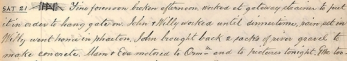 SAT 21 Fine forenoon broken afternoon, worked at getaway steamer to put
it in order to hang gate on. John & Willy worked until dinnertime, rain set in
Willy went home in phaeton, John brought back 2 sacks of river gravel to
make concrete. Mam & Eva motored to Omn and to pictures tonight. The